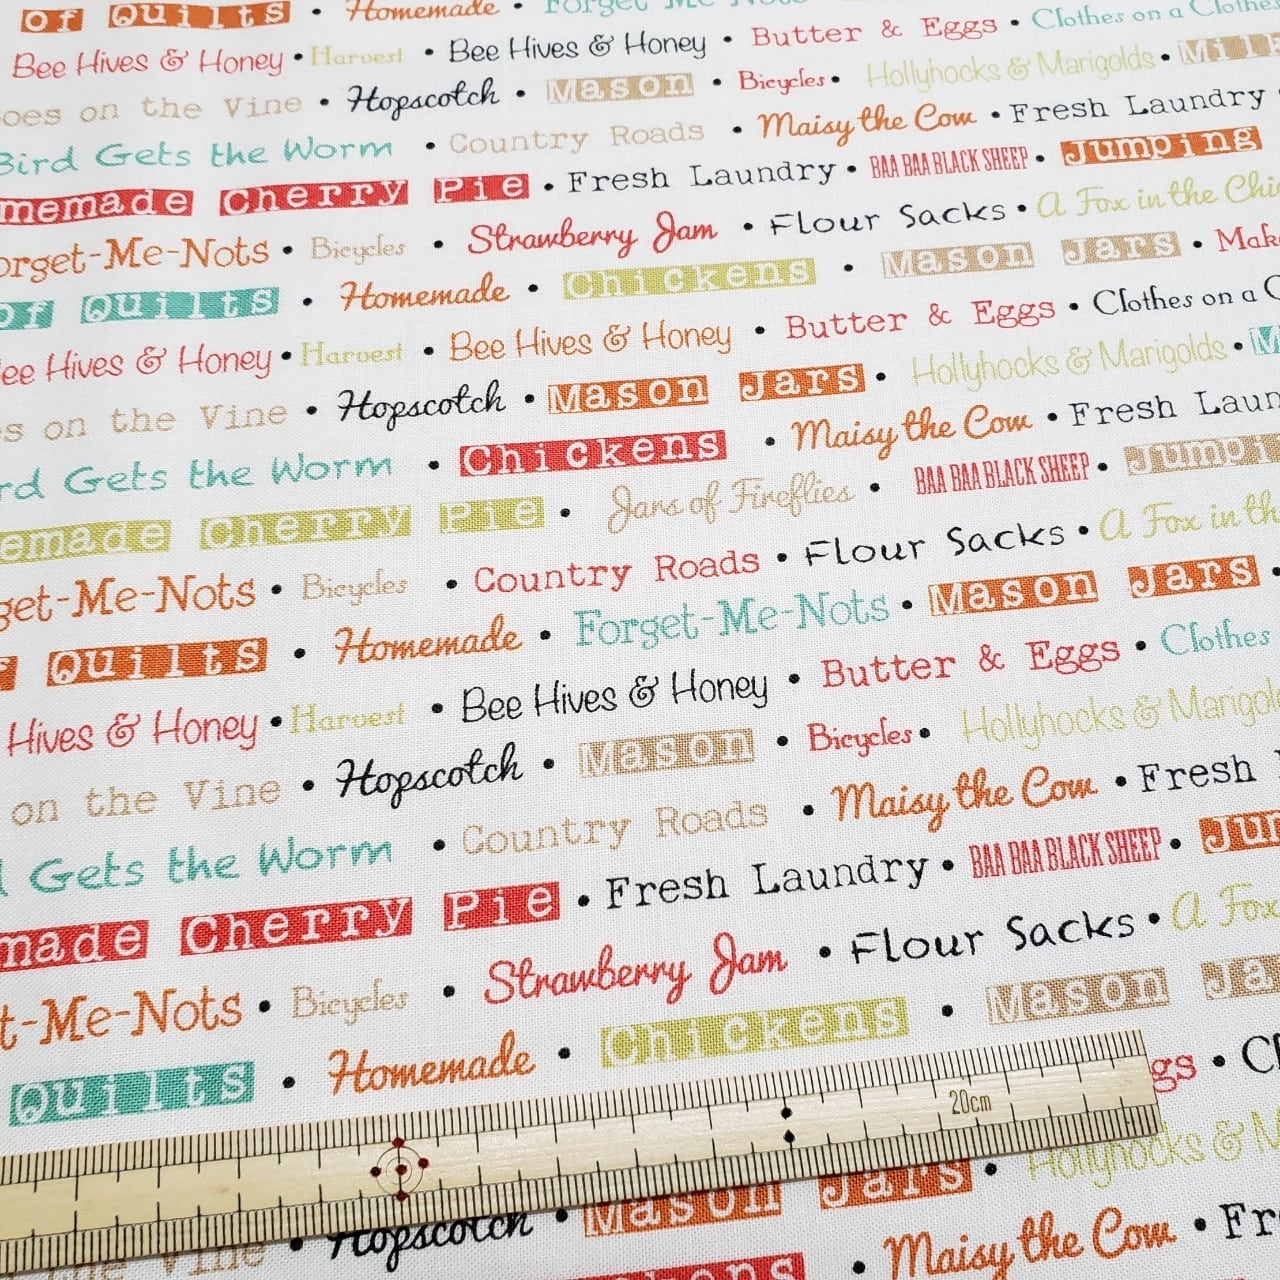 of Quilts • Homemade • Forget Me Nots
Bee Hives & Honey • Harvest • Bee Hives & Honey • Butter & Eggs • Clothes on a Clothes
oes on the Vine • Hopscotch • Mason • Bicycles • Hollyhocks & Marigolds • Milk
Bird Gets the Worm • Country Roads • Maisy the Cow • Fresh Laundry
memade Cherry Pie • Fresh Laundry • BAA BAA BLACK SHEEP • Jumping
orget-Me-Nots • Bicycles • Strawberry Jam • Flour Sacks • A Fox in the Chi
of Quilts • Homemade • Chickens • Mason Jars • Mak
ee Hives & Honey • Harvest • Bee Hives & Honey • Butter & Eggs • Clothes on a C
s on the Vine • Hopscotch • Mason Jars • Hollyhocks & Marigolds • M
rd Gets the Worm • Chickens • Maisy the Cow • Fresh Laun
emade Cherry Pie • Jars of Fireflies • BAA BAA BLACK SHEEP • Jumpi
get-Me-Nots • Bicycles • Country Roads • Flour Sacks • A Fox in th
f Quilts • Homemade • Forget-Me-Nots • Mason Jars •
Hives & Honey • Harvest • Bee Hives & Honey • Butter & Eggs • Clothes
on the Vine • Hopscotch • Mason • Bicycles • Hollyhocks & Marigol
d Gets the Worm • Country Roads • Maisy the Cow • Fresh
made Cherry Pie • Fresh Laundry • BAA BAA BLACK SHEEP • Jum
t-Me-Nots • Bicycles • Strawberry Jam • Flour Sacks • A Fox
Quilts • Homemade • Chickens • Mason Ja
gs • Cl
20cm
Hollyhocks & M
the Vine • Hopscotch • Mason Jars •
kens • Maisy the Cow • Fr